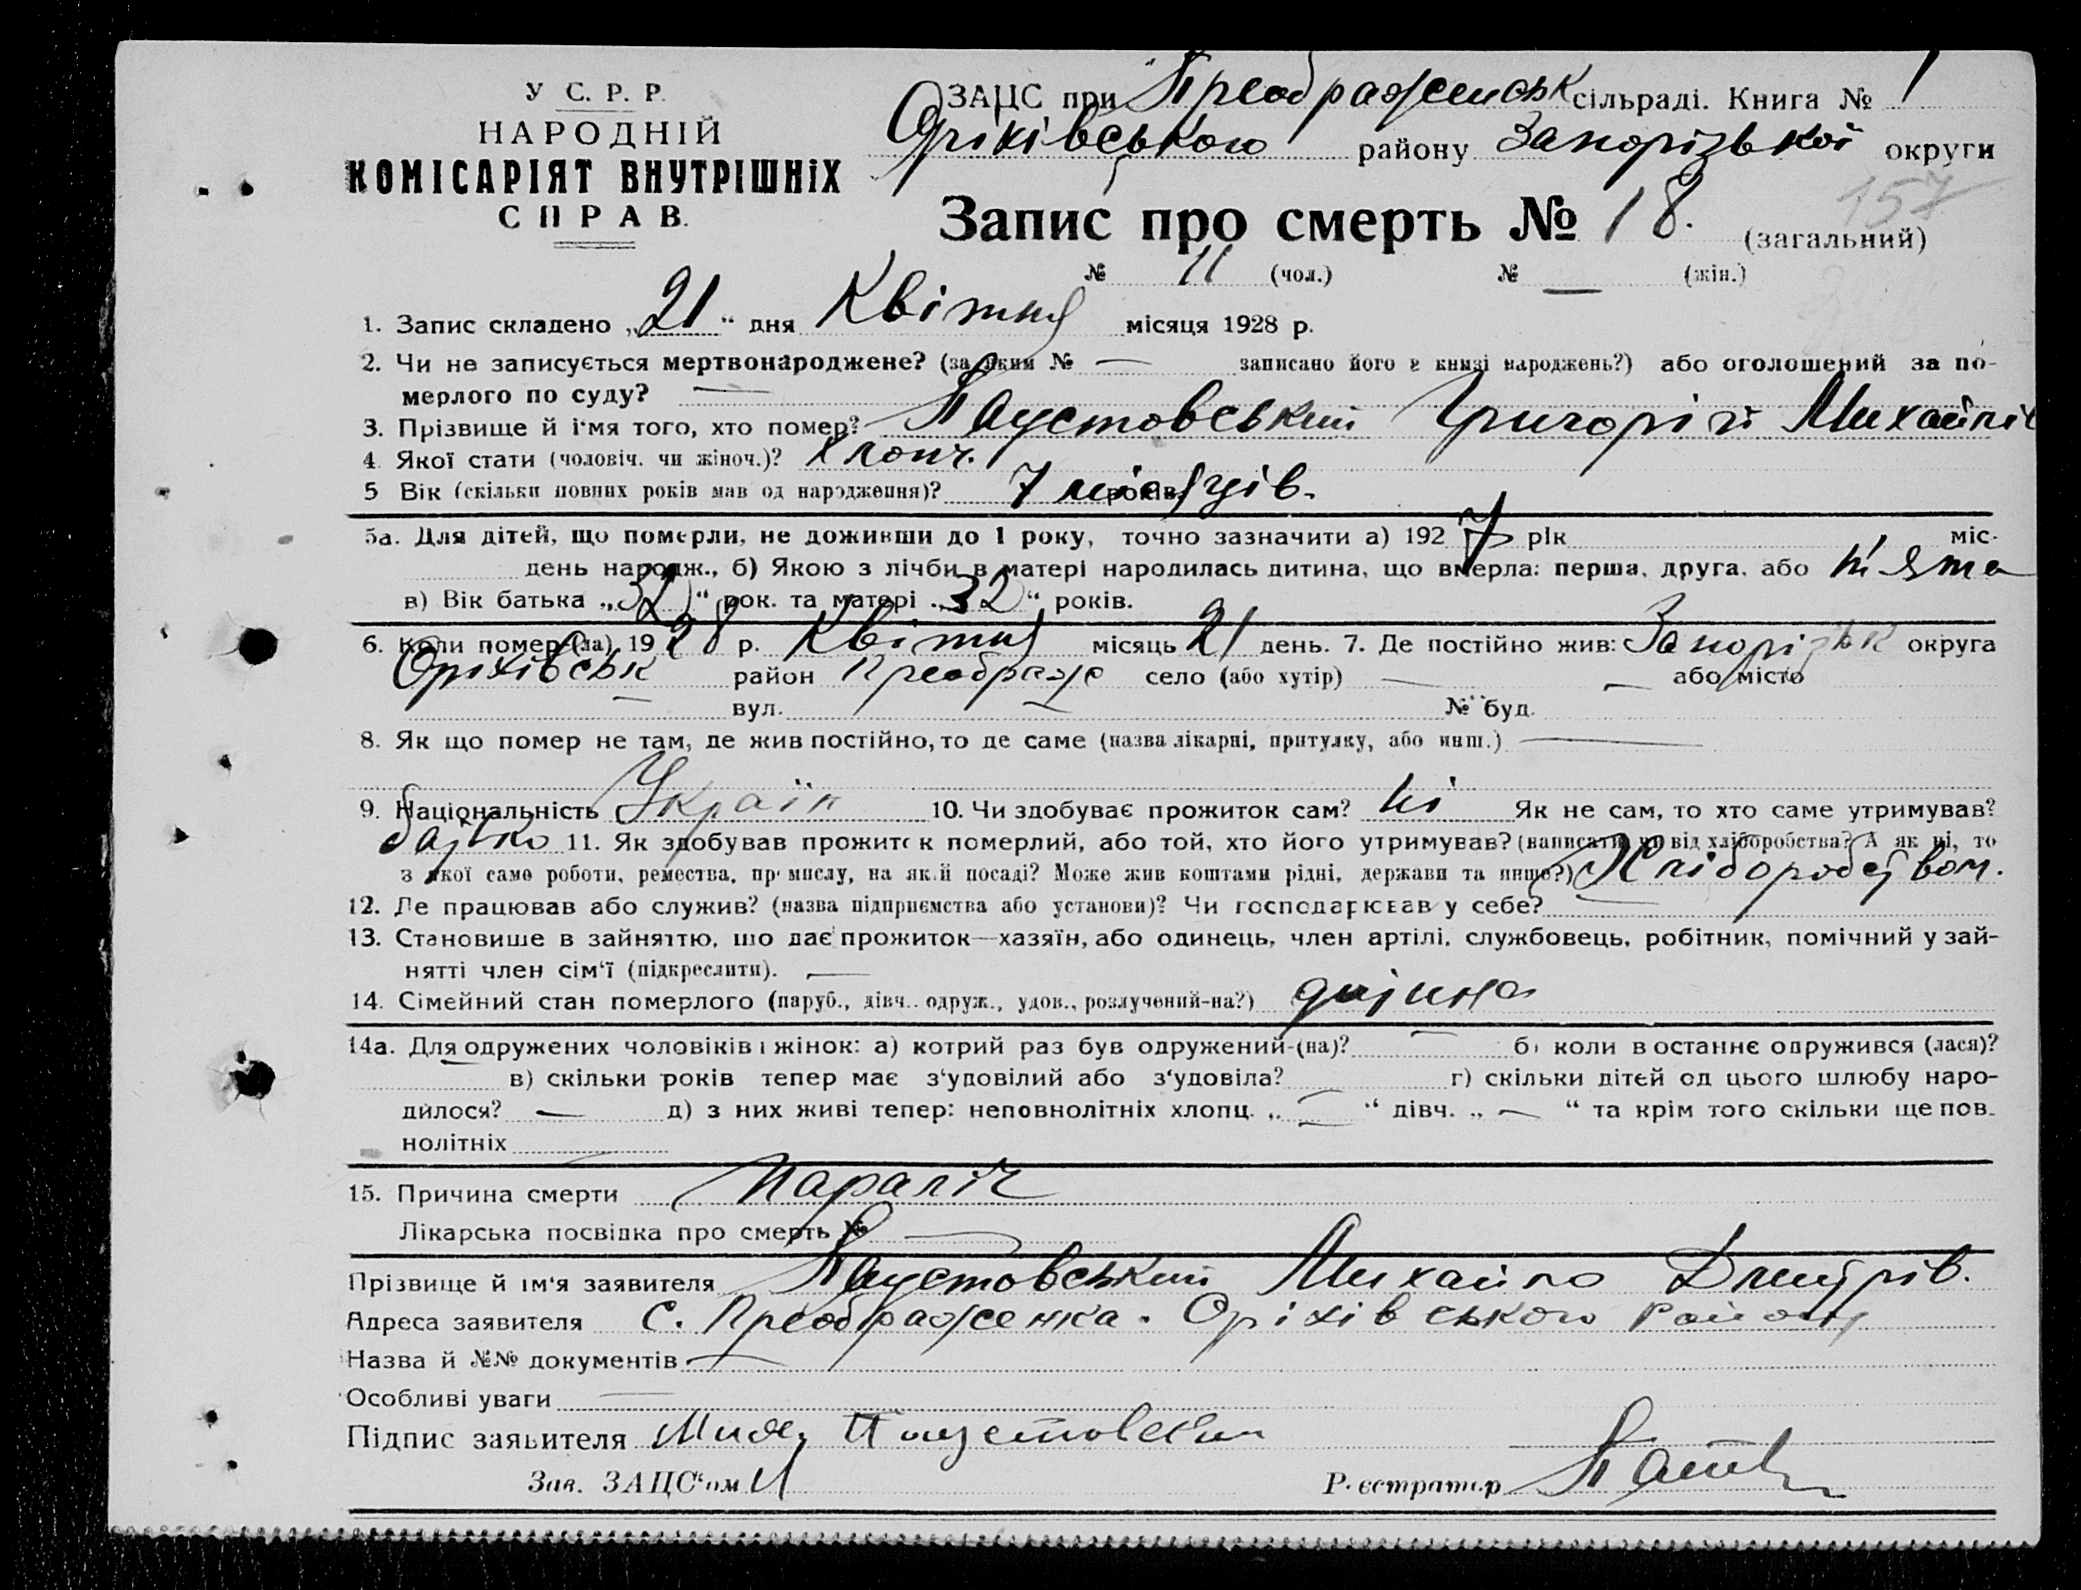 У С. Р. Р.
НАРОДНІЙ
КОМІСАРІЯТ ВНУТРІШНІХ
СПРАВ.
ЗАЦС при Преображенськ сільраді. Книга № 1
Оріхівського району Запорізької округи
Запис про смерть № 18. (загальний)
157
№ 11 (чол.) № — (жін.)
1. Запис складено „21“ дня Квітня місяця 1928 р.
2. Чи не записується мертвонароджене? (за яким № — записано його в книзі народжень?) або оголошений за по-
мерлого по суду? —
3. Прізвище й ім'я того, хто помер? Паустовський Григорій Михайлів
4. Якої стати (чоловіч. чи жіноч.)? хлопч.
5 Вік (скільки повних років мав од народження)? 7 місяців. років
5а. Для дітей, що померли, не доживши до 1 року, точно зазначити а) 1927 рік міс.
день народж., б) Якою з лічби в матері народилась дитина, що вмерла: перша, друга, або п'ята
в) Вік батька „32“ рок. та матері „32“ років.
6. Коли помер (ла) 1928 р. Квітня місяць 21 день. 7. Де постійно жив: Запорізьк округа
Оріхівськ район Преображ село (або хутір) — або місто
— вул. — № буд.
8. Як що помер не там, де жив постійно, то де саме (назва лікарні, притулку, або инш.) —
9. Національність Україн 10. Чи здобуває прожиток сам? Ні Як не сам, то хто саме утримував?
батько 11. Як здобував прожиток померлий, або той, хто його утримував? (написати чи від хліборобства? А як ні, то
з якої саме роботи, ремества, промислу, на якій посаді? Може жив коштами рідні, держави та инше?) Хліборобством.
12. Де працював або служив? (назва підприємства або установи)? Чи господарював у себе? —
13. Становише в зайняттю, що дає прожиток—хазяїн, або одинець, член артілі, службовець, робітник, помічний у зай-
нятті член сім'ї (підкреслити). —
14. Сімейний стан померлого (паруб., дівч. одруж., удов., розлучений-на?) дитина
14а. Для одружених чоловіків і жінок: а) котрий раз був одружений-(на)? — б) коли в останнє одружився (лася)?
— в) скільки років тепер має з'удовілий або з'удовіла? г) скільки дітей од цього шлюбу наро-
дилося? — д) з них живі тепер: неповнолітніх хлопц. „—“ дівч. „—“ та крім того скільки ще пов-
нолітніх
15. Причина смерти Параліч
Лікарська посвідка про смерть № —
Прізвище й ім'я заявителя Паустовський Михайло Дмитрів.
Адреса заявителя с. Преображенка. Оріхівського району
Назва й №№ документів —
Особливі уваги —
Підпис заявителя Мих. Паустовский
Зав. ЗАЦС'ом Реєстратор